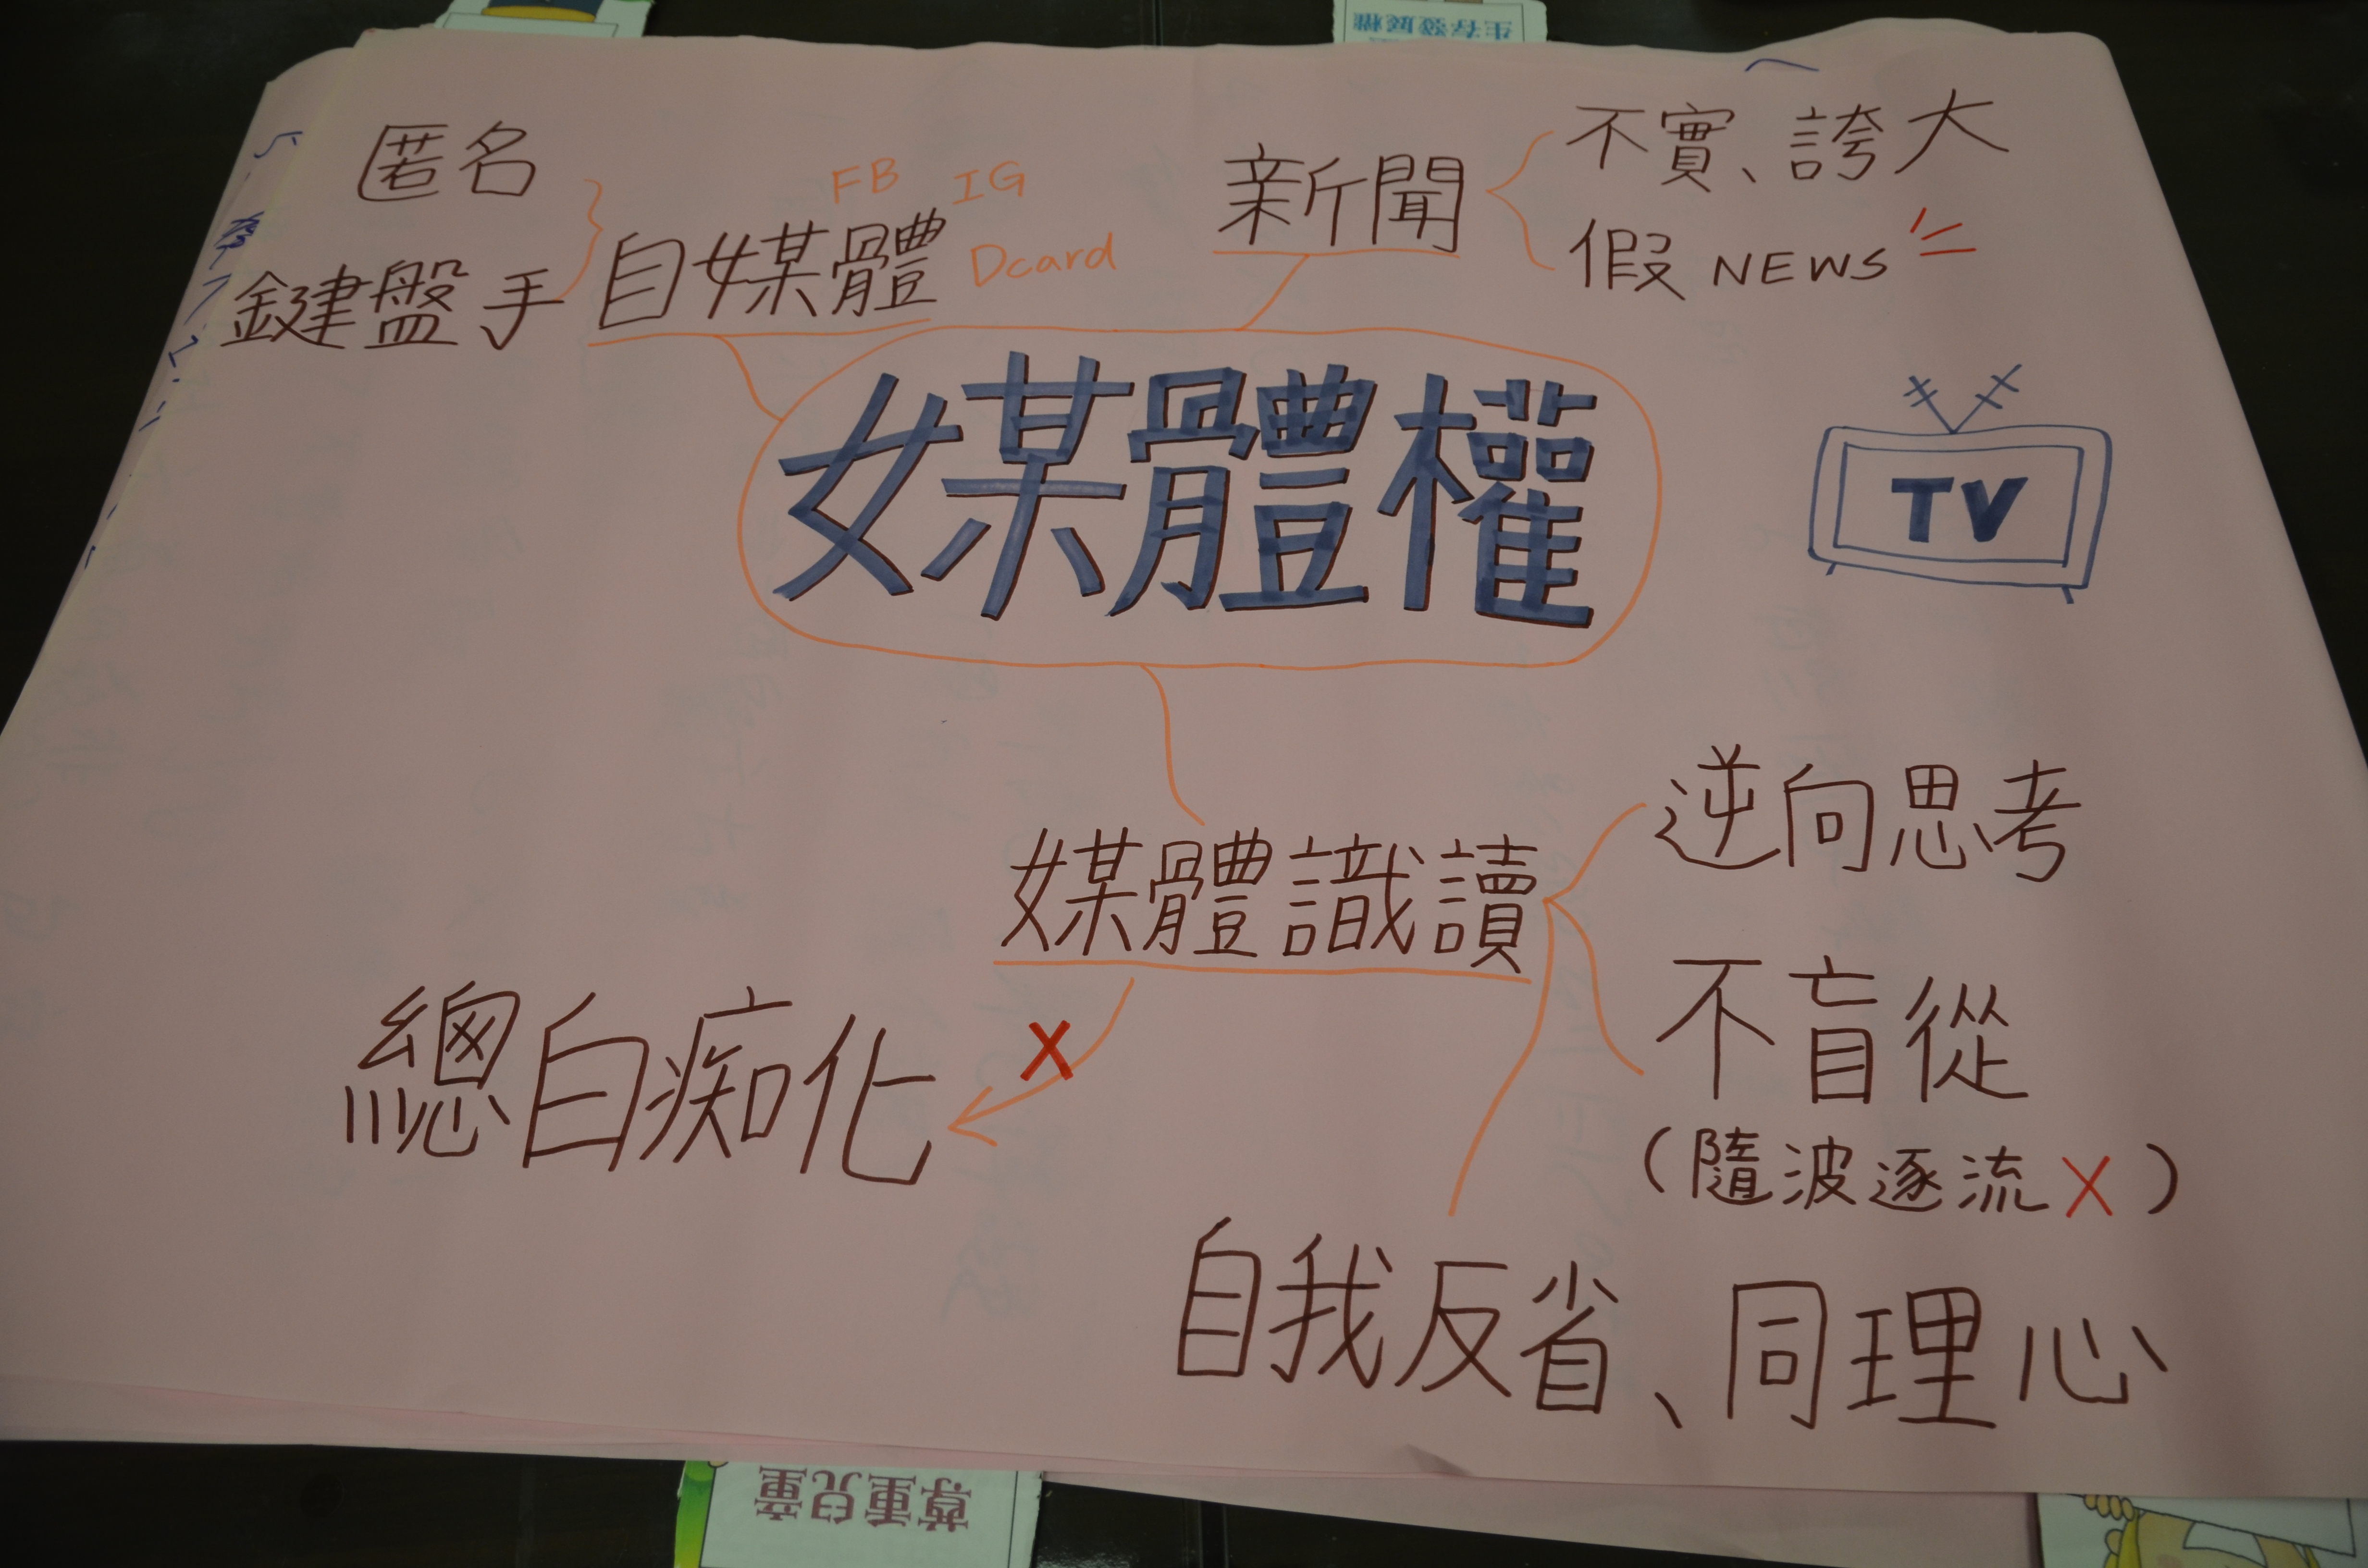 生存發展權
匿名
鍵盤手
自媒體
FB IG
Dcard
新聞
不實、誇大
假 NEWS
媒體權
TV
媒體識讀
逆向思考
不盲從
(隨波逐流X)
X
總白痴化
自我反省、同理心
尊重兒童